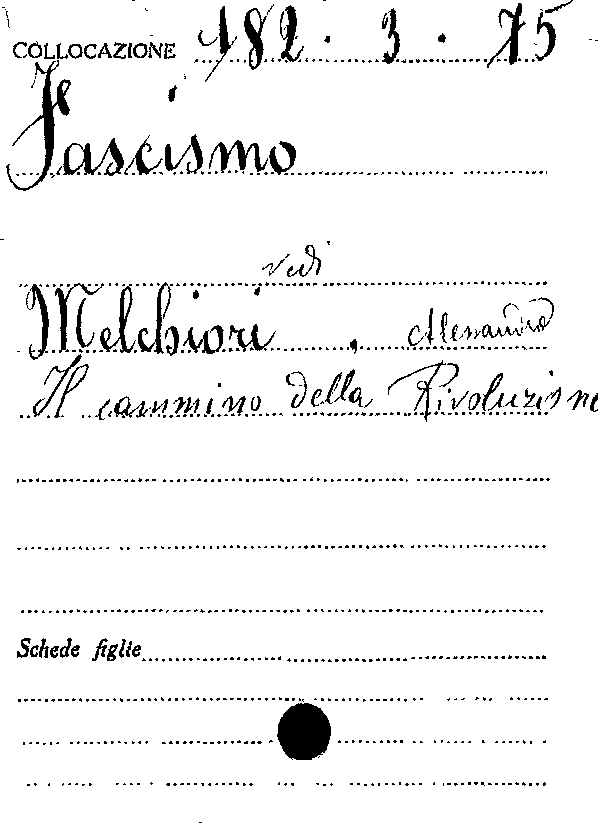 COLLOCAZIONE 182 . 3 . 75
Fascismo
vedi
Melchiori , Alessandro
Il cammino della Rivoluzione
Schede figlie